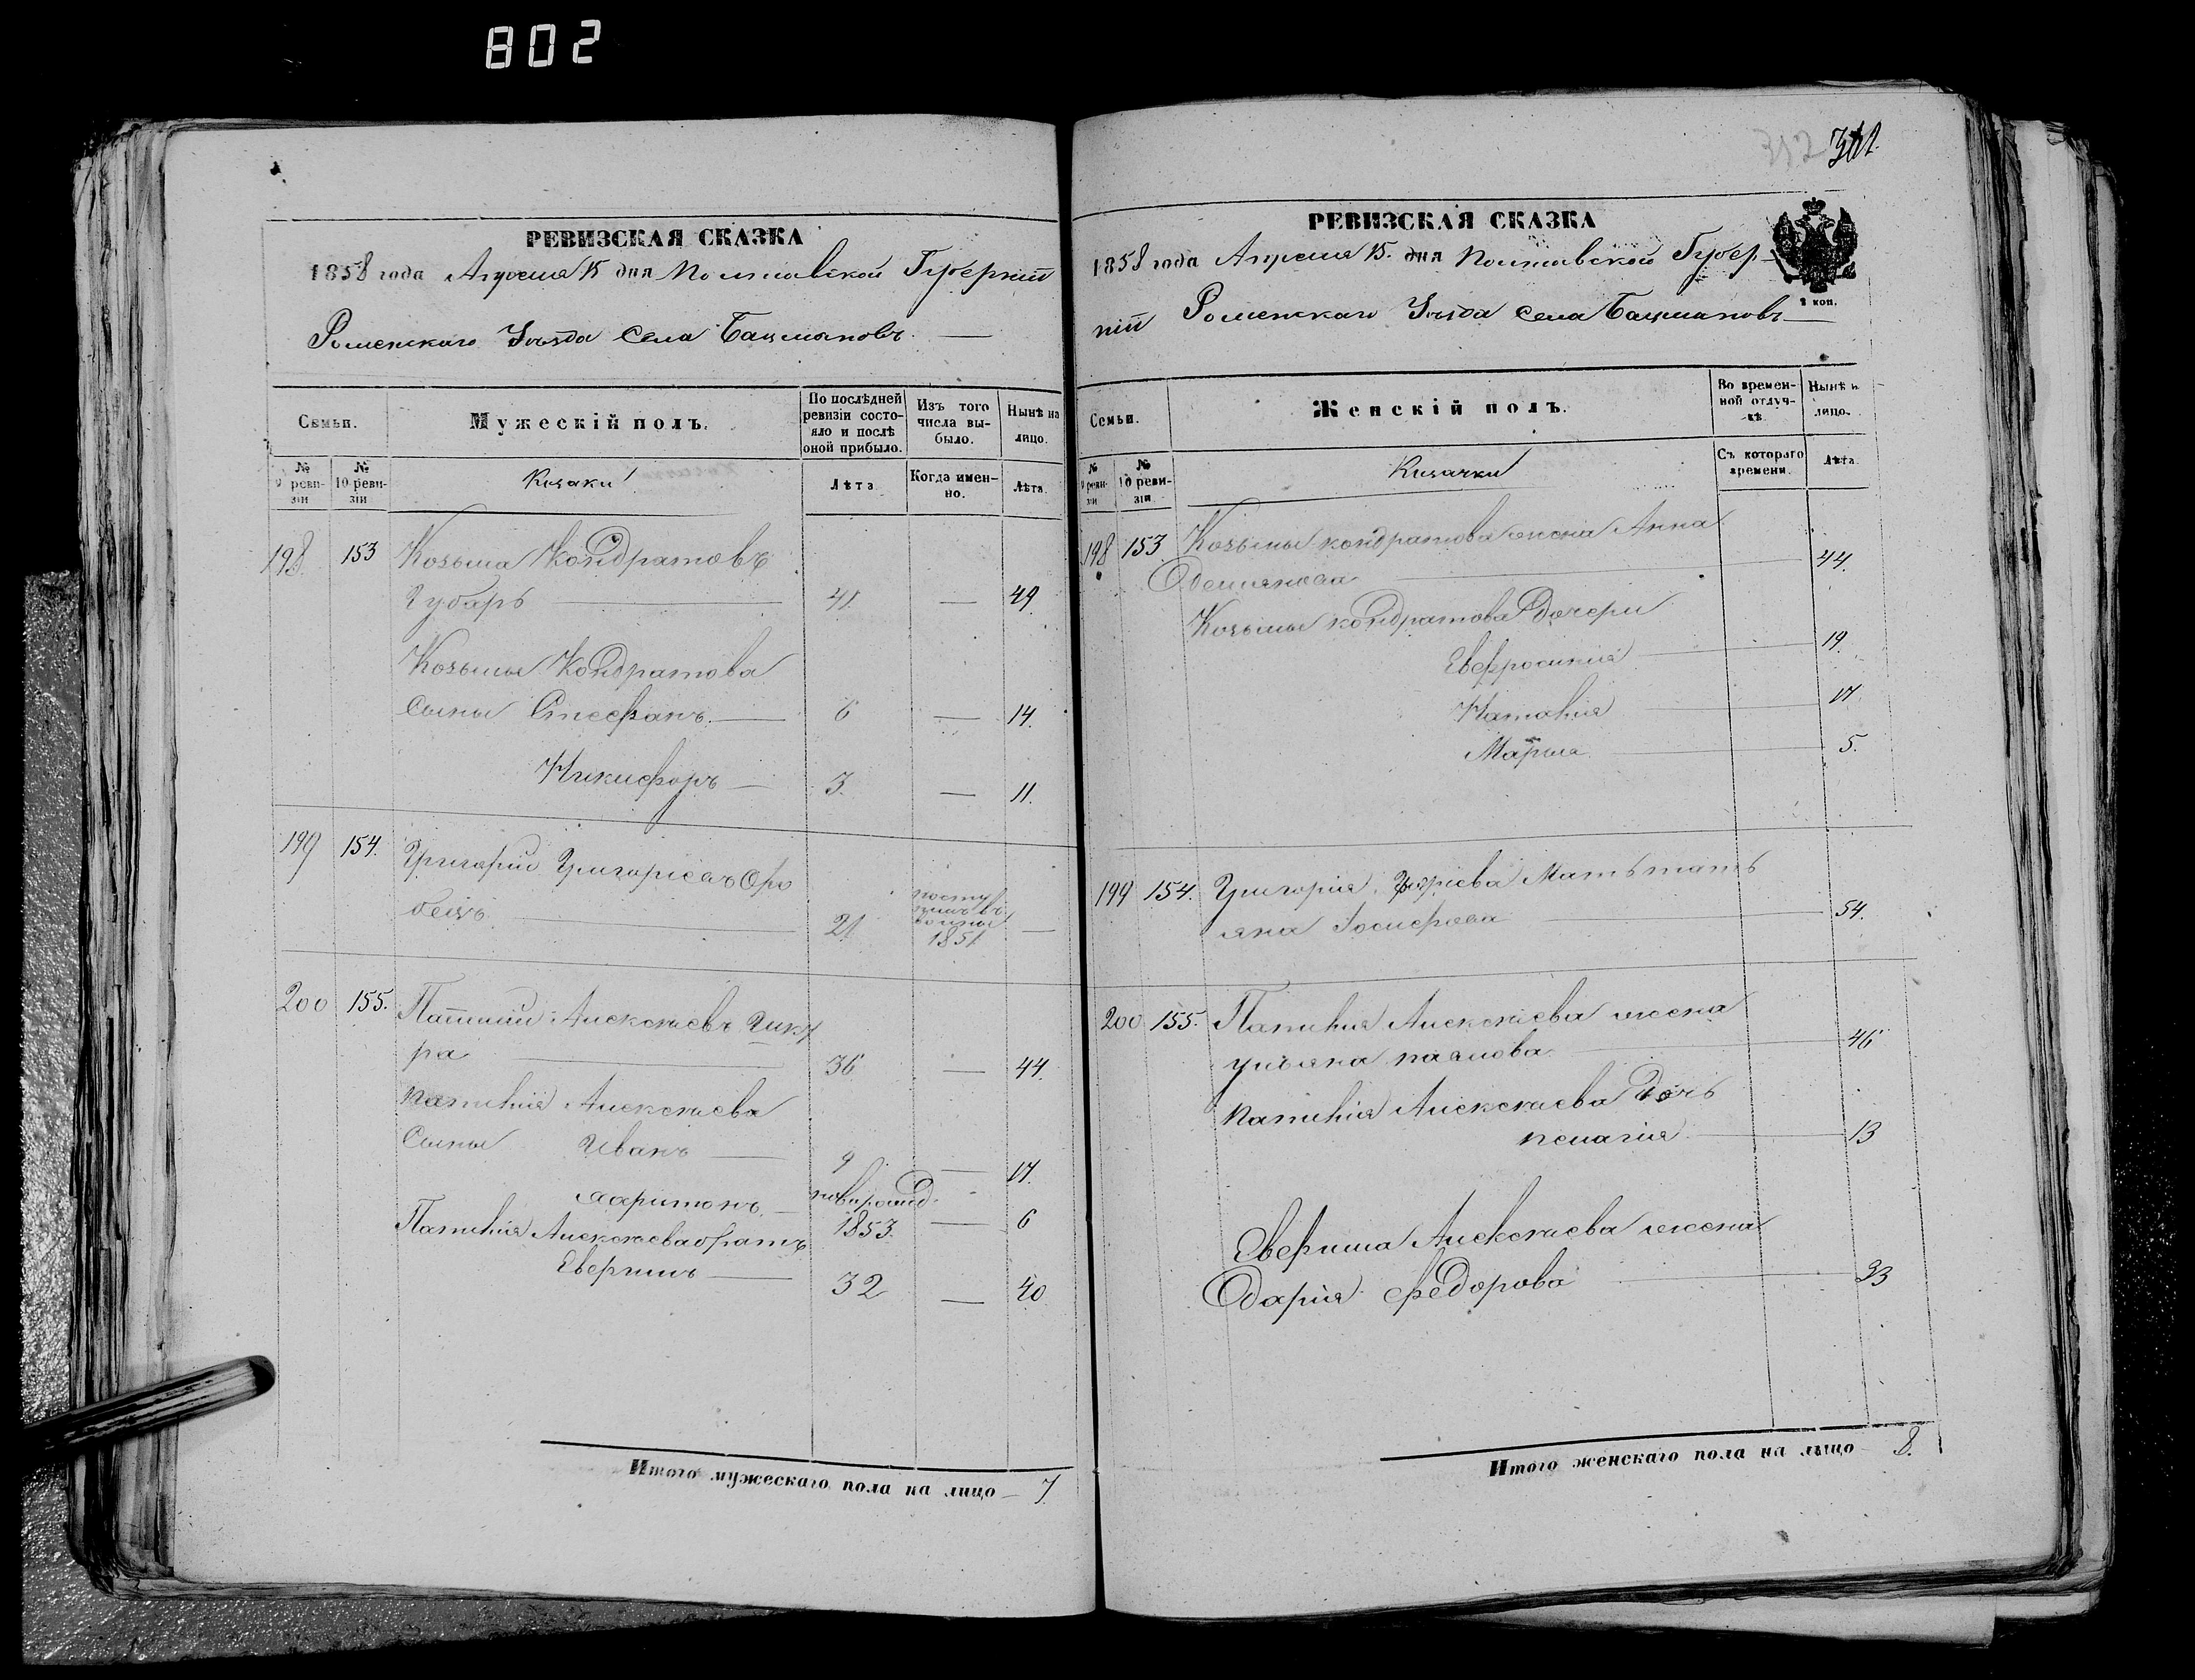 802
РЕВИЗСКАЯ СКАЗКА
1858 года Апреля 15 дня Полтавской Губернии
Роменскаго Уѣзда Села Бацмановъ
Семьи.
Мужескій полъ.
По послѣдней ревизіи состояло и послѣ оной прибыло.
Изъ того числа выбыло.
Нынѣ на лицо.
№ 9 ревизіи
№ 10 ревизіи
Козаки
Лѣта
Когда именно.
Лѣта
198 153 Козьма Кондратовъ
Губарь 41 — 49
Козьмы Кондратова
Сыны Стефанъ 6 — 14
Никифоръ 3 — 11
199 154 Григорій Григоріевъ Оро
бецъ 21 поступилъ въ 1851 —
200 155 Патикій Алексѣевъ
ра 36 — 44
Патикія Алексѣева
Сыны Иванъ 9 — 17
Харитонъ новорожд. 1853 — 6
Патикія Алексѣева братъ
Еверкилъ 32 — 40
Итого мужескаго пола на лицо 7
301
РЕВИЗСКАЯ СКАЗКА
1858 года Апреля 15 дня Полтавской Губер
ніи Роменскаго Уѣзда Села Бацмановъ
2 коп.
Семьи.
Женскій полъ.
Во временной отлучкѣ.
Нынѣ на лицо.
№ 9 ревизіи
№ 10 ревизіи
Козачки
Съ котораго времени.
Лѣта
198 153 Козьмы Кондратова жена Анна
Демьянова 44
Козьмы Кондратова дочери
Евфросинія 19
Наталія 17
Марія 5
199 154 Григорія Мать тать
яна Іосифова 54
200 155 Патикія Алексѣева жена
ульяна павлова 46
Патикія Алексѣева дочь
пелагія 13
Алексѣева жена
Дарія Федорова 33
Итого женскаго пола на лицо 8